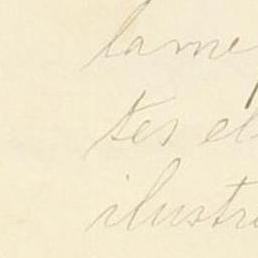 lame
tes el
ilustr